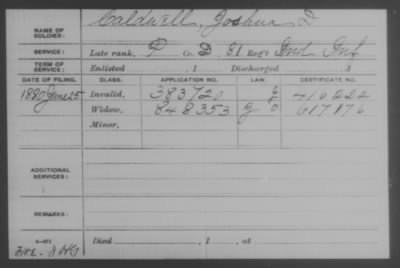 NAME OF SOLDIER: Caldwell, Joshua D.
SERVICE: Late rank, P Co. D, 81 Reg't Ind Inf
TERM OF SERVICE: Enlisted , 1 Discharged , 1
DATE OF FILING. CLASS. APPLICATION NO. LAW. CERTIFICATE NO.
1880 June 25 Invalid, 383720 410222
Widow, 848353 617176
Minor,
ADDITIONAL SERVICES:
REMARKS:
Died , 1 , at